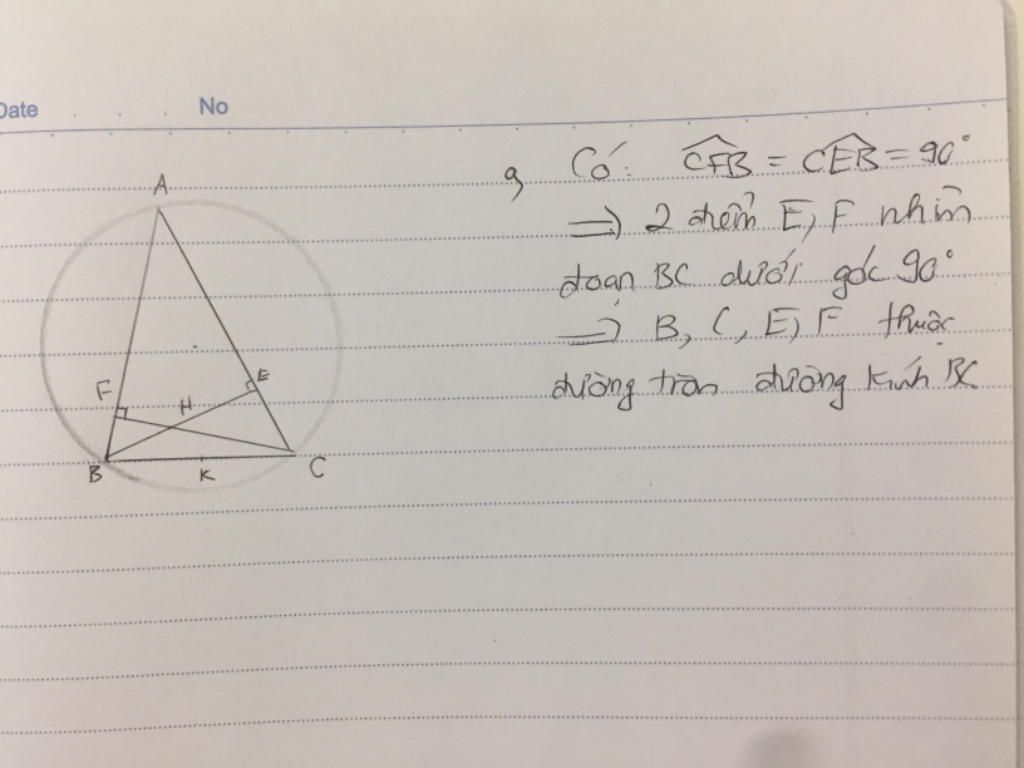 Date No
a, Có: CFB = CEB = 90°
⇒ 2 điểm E, F nhìn
đoạn BC dưới góc 90°
⇒ B, C, E, F thuộc
đường tròn đường kính BC
A
F
E
H
B
K
C